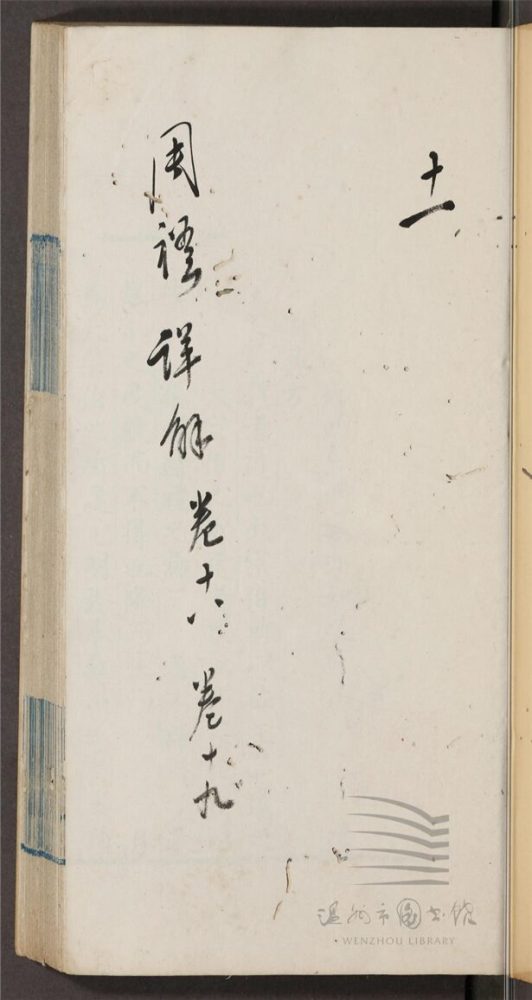 十一
周禮詳解卷十八 卷十九
温州市图书馆
• WENZHOU LIBRARY